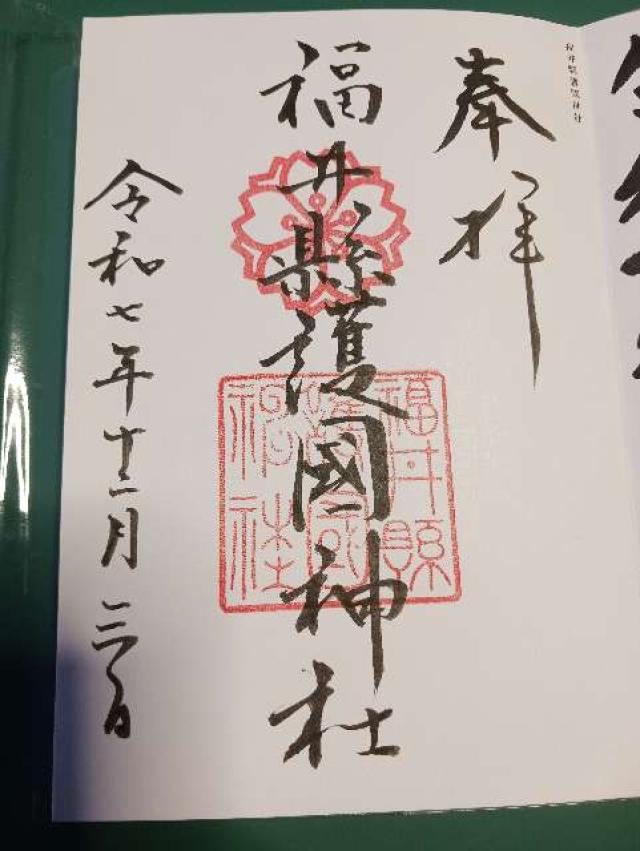 福井縣護國神社
奉拝
福井縣護國神社
福井縣
護國
神社
令和七年十二月三日